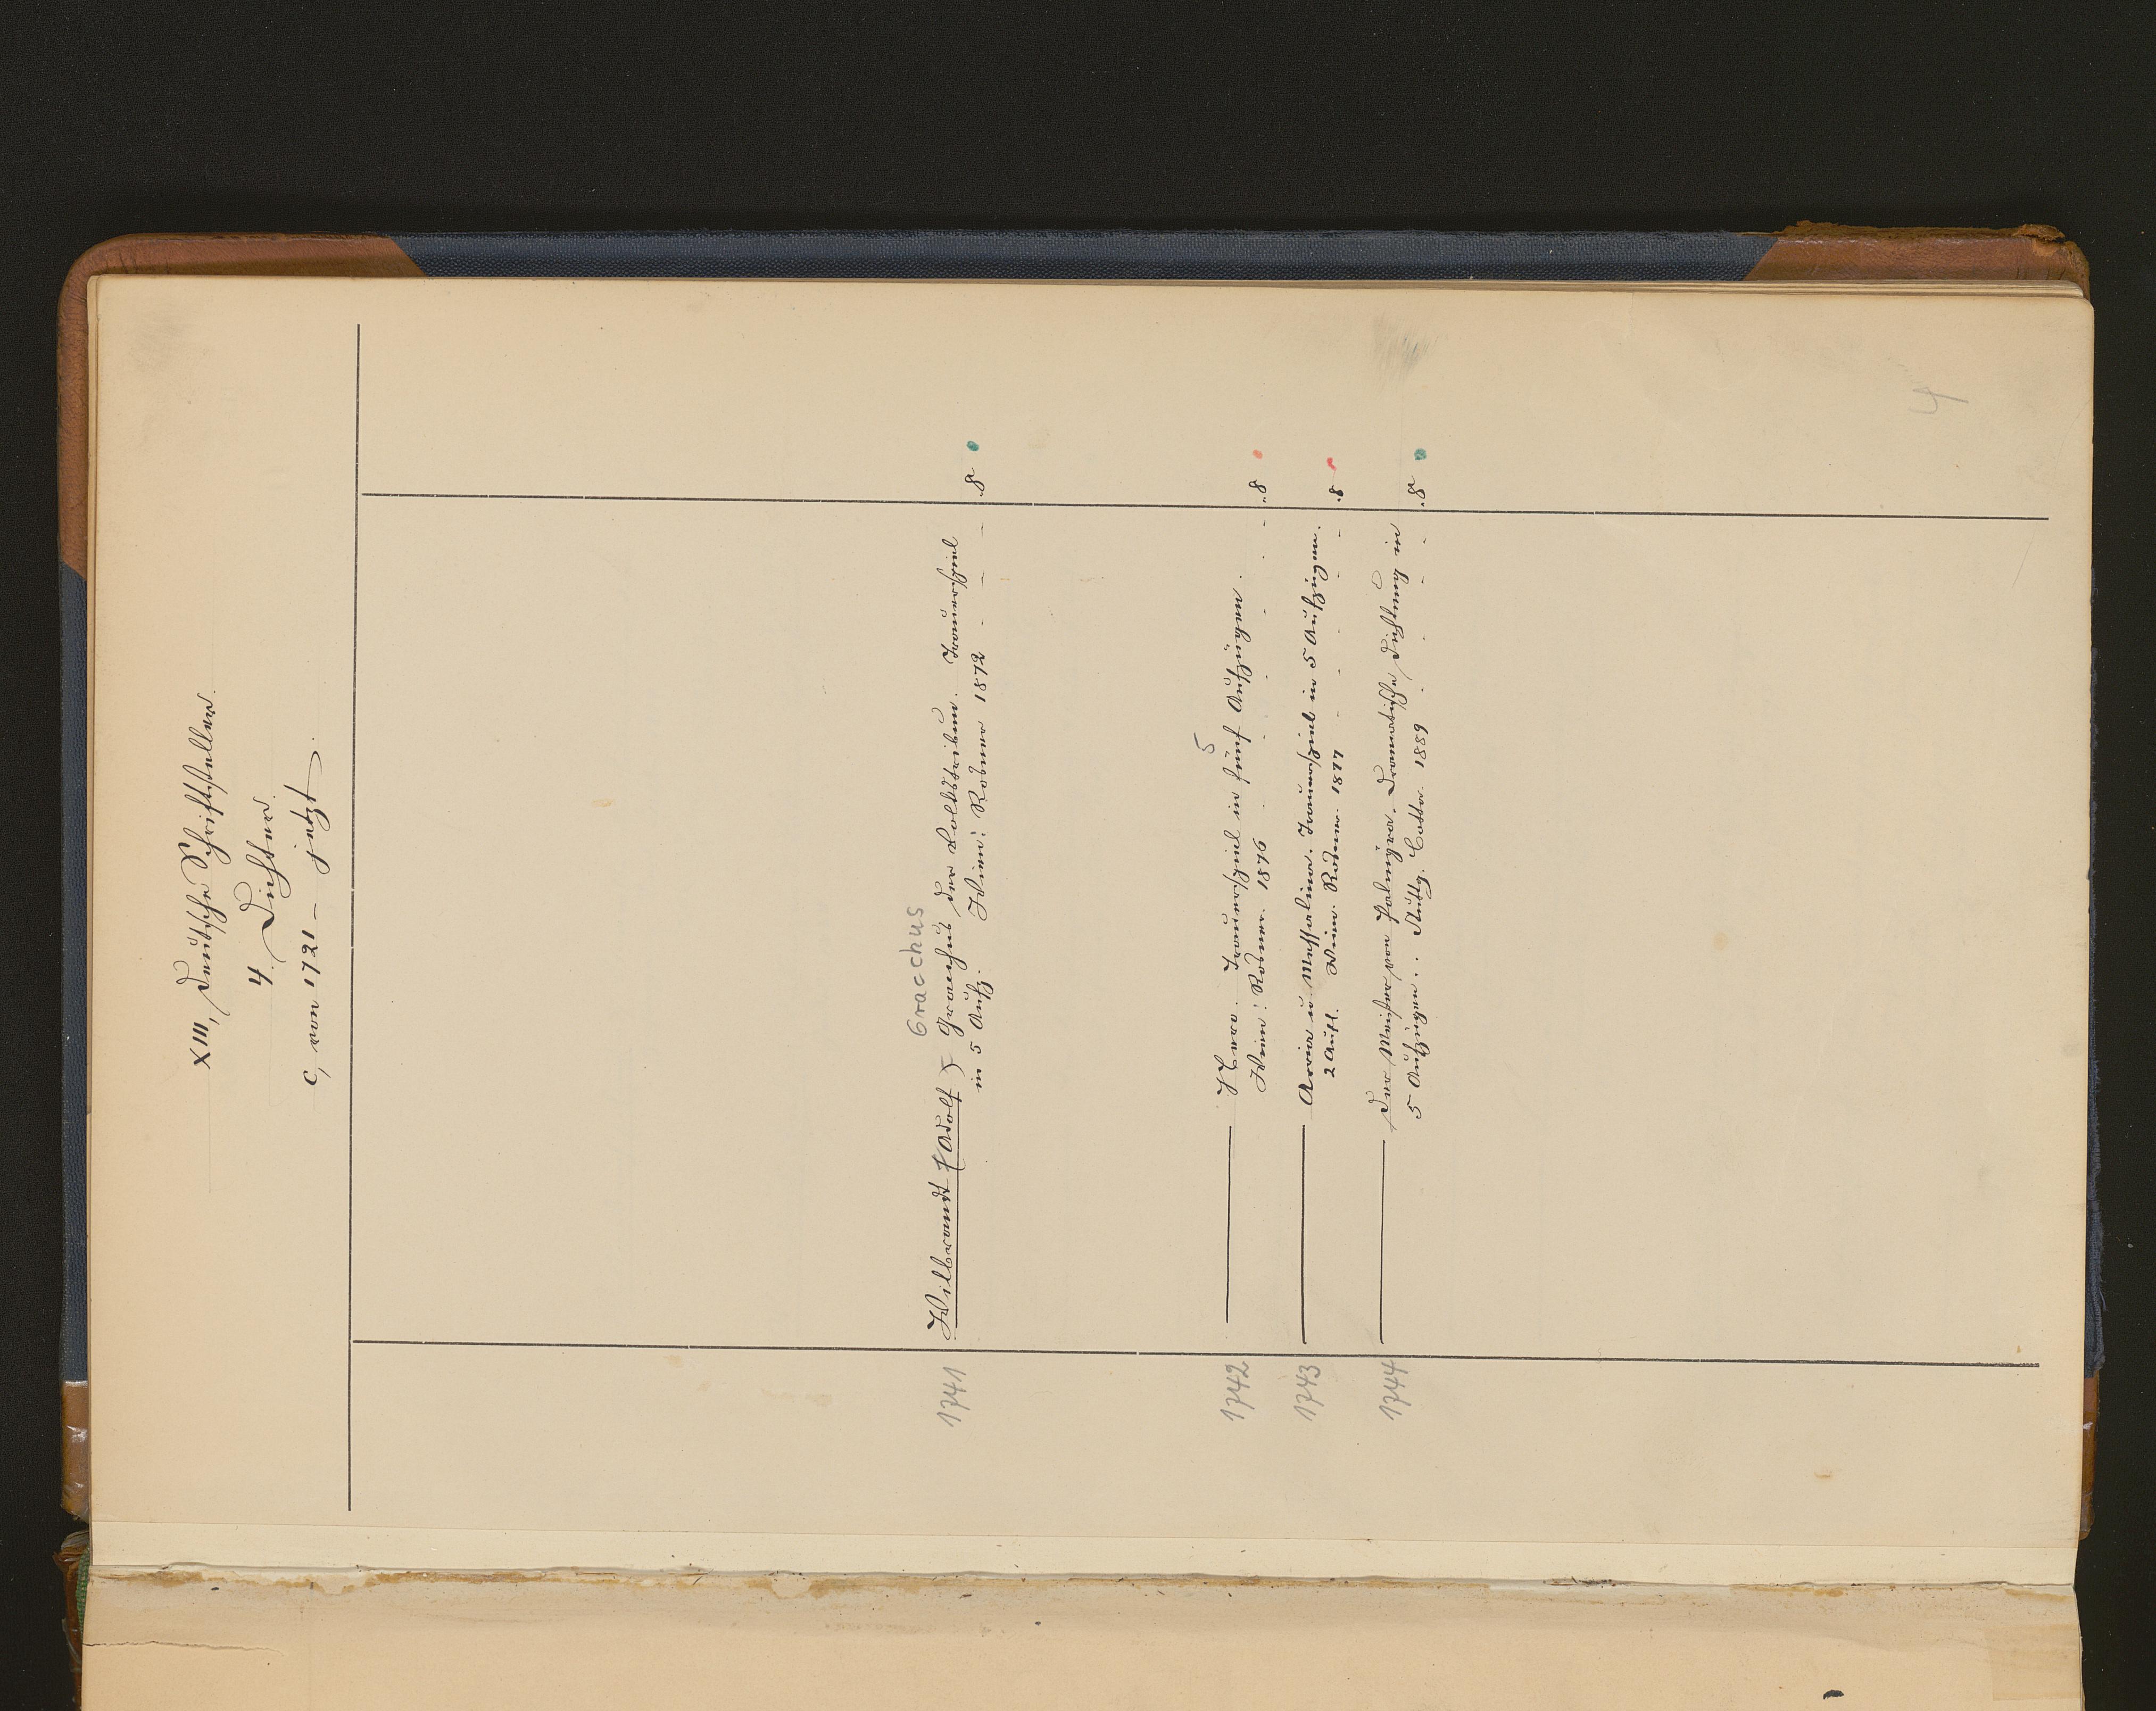 XIII, Deutsche Schriftsteller.
4. Dichter.
c, von 1721 – jetzt.
Gracchus
1741 Wilbrandt (Adolf) Gracchus der Volkstribun. Trauerspiel
in 5 Aufz. Wien: Rosner 1872 - - - - .8
5
1742 ——— Nero. Trauerspiel in fünf Aufzügen.
Wien: Rosner. 1876 - - - - - - ..8
1743 ——— Arria u. Messalina. Trauerspiel in 5 Aufzügen.
2 Aufl. Wien. Rosner. 1877 - - - - - .8
1744 ——— Der Meister von Palmyra. Dramatische Dichtung in
5 Aufzügen. . Stuttg. Cotta. 1889 - - - - .8
4